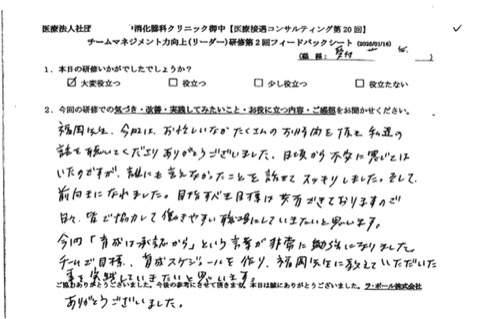 医療法人社団 消化器科クリニック御中【医療接遇コンサルティング第20回】
チームマネジメント力向上(リーダー)研修第2回フィードバックシート(2025/01/16)
(職種: 受付 )
1.本日の研修いかがでしたでしょうか?
☑大変役立つ □役立つ □少し役立つ □役立たない
2.今回の研修での気づき・改善・実践してみたいこと・お役に立つ内容・ご感想をお聞かせください。
福岡先生、今日は、お忙しいなかたくさんのお時間を頂き私達の
話を聴いてくださりありがとうございました。日頃から不安に感じては
いたのですが、誰にも言えなかったことを話せてスッキリしました。そして、
前向きになれました。目指すべき目標は共有できておりますので
日々、皆で協力して働きやすい職場にしていきたいと思います。
今回「育成は承認から」という言葉が非常に勉強になりました。
チームで目標、育成スケジュールを作り、福岡先生に教えていただいた
事を実践していきたいと思います。
ご協力ありがとうございました。今後の参考にさせて頂きます。本日は誠にありがとうございました。ラ・ポール株式会社
ありがとうございました。